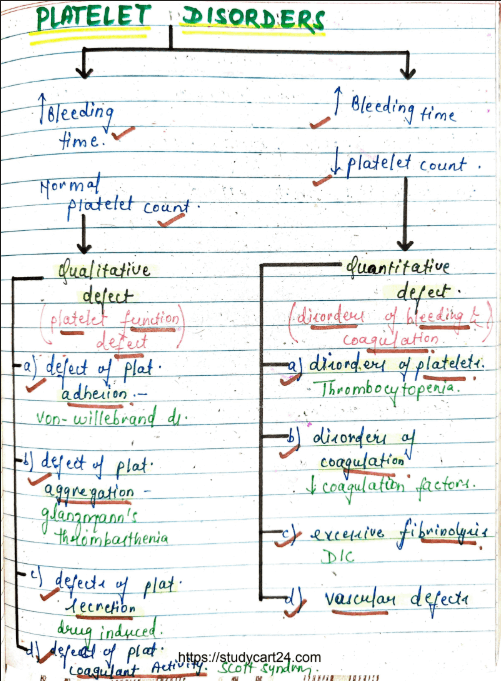 PLATELET DISORDERS
↑ Bleeding
time.
Normal
platelet count.
Qualitative
defect
(platelet function)
defect
a) defect of plat.
adhesion -
von-willebrand ds.
b) defect of plat.
aggregation -
glanzmann's
thrombasthenia
c) defects of plat.
secretion
drug induced.
d) defect of plat.
coagulant Activity. Scott Syndrm.
↑ Bleeding time
↓ platelet count.
Quantitative
defect.
(disorders of bleeding &
coagulation)
a) disorders of platelets.
- Thrombocytopenia.
b) disorders of
coagulation.
↓ coagulation factors.
c) excessive fibrinolysis
DIC
d) vascular defects
https://studycart24.com